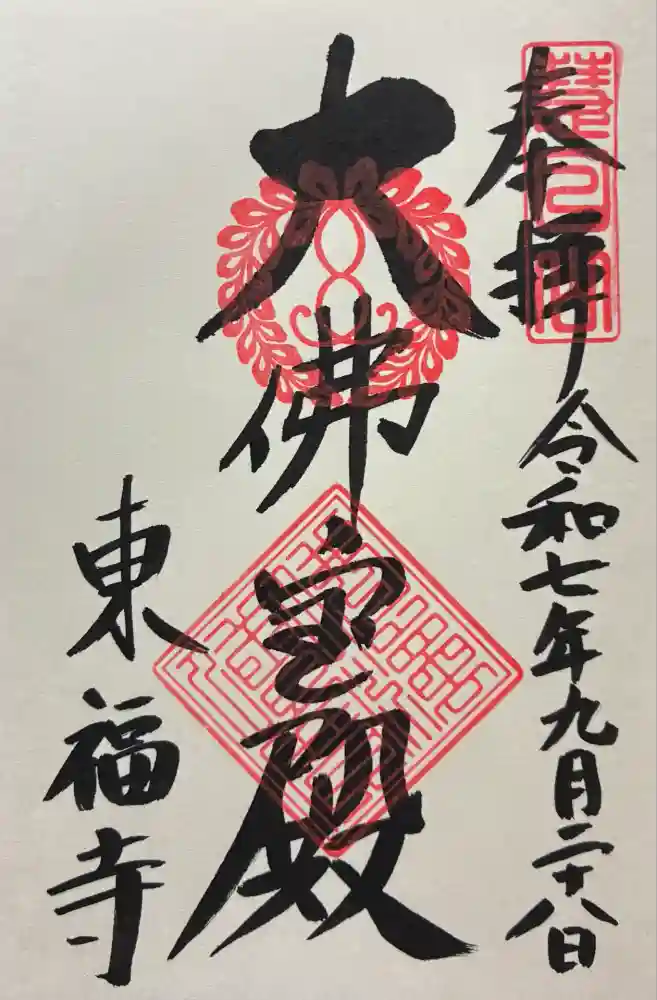 奉拝
令和七年九月二十八日
大佛宝殿
東福寺